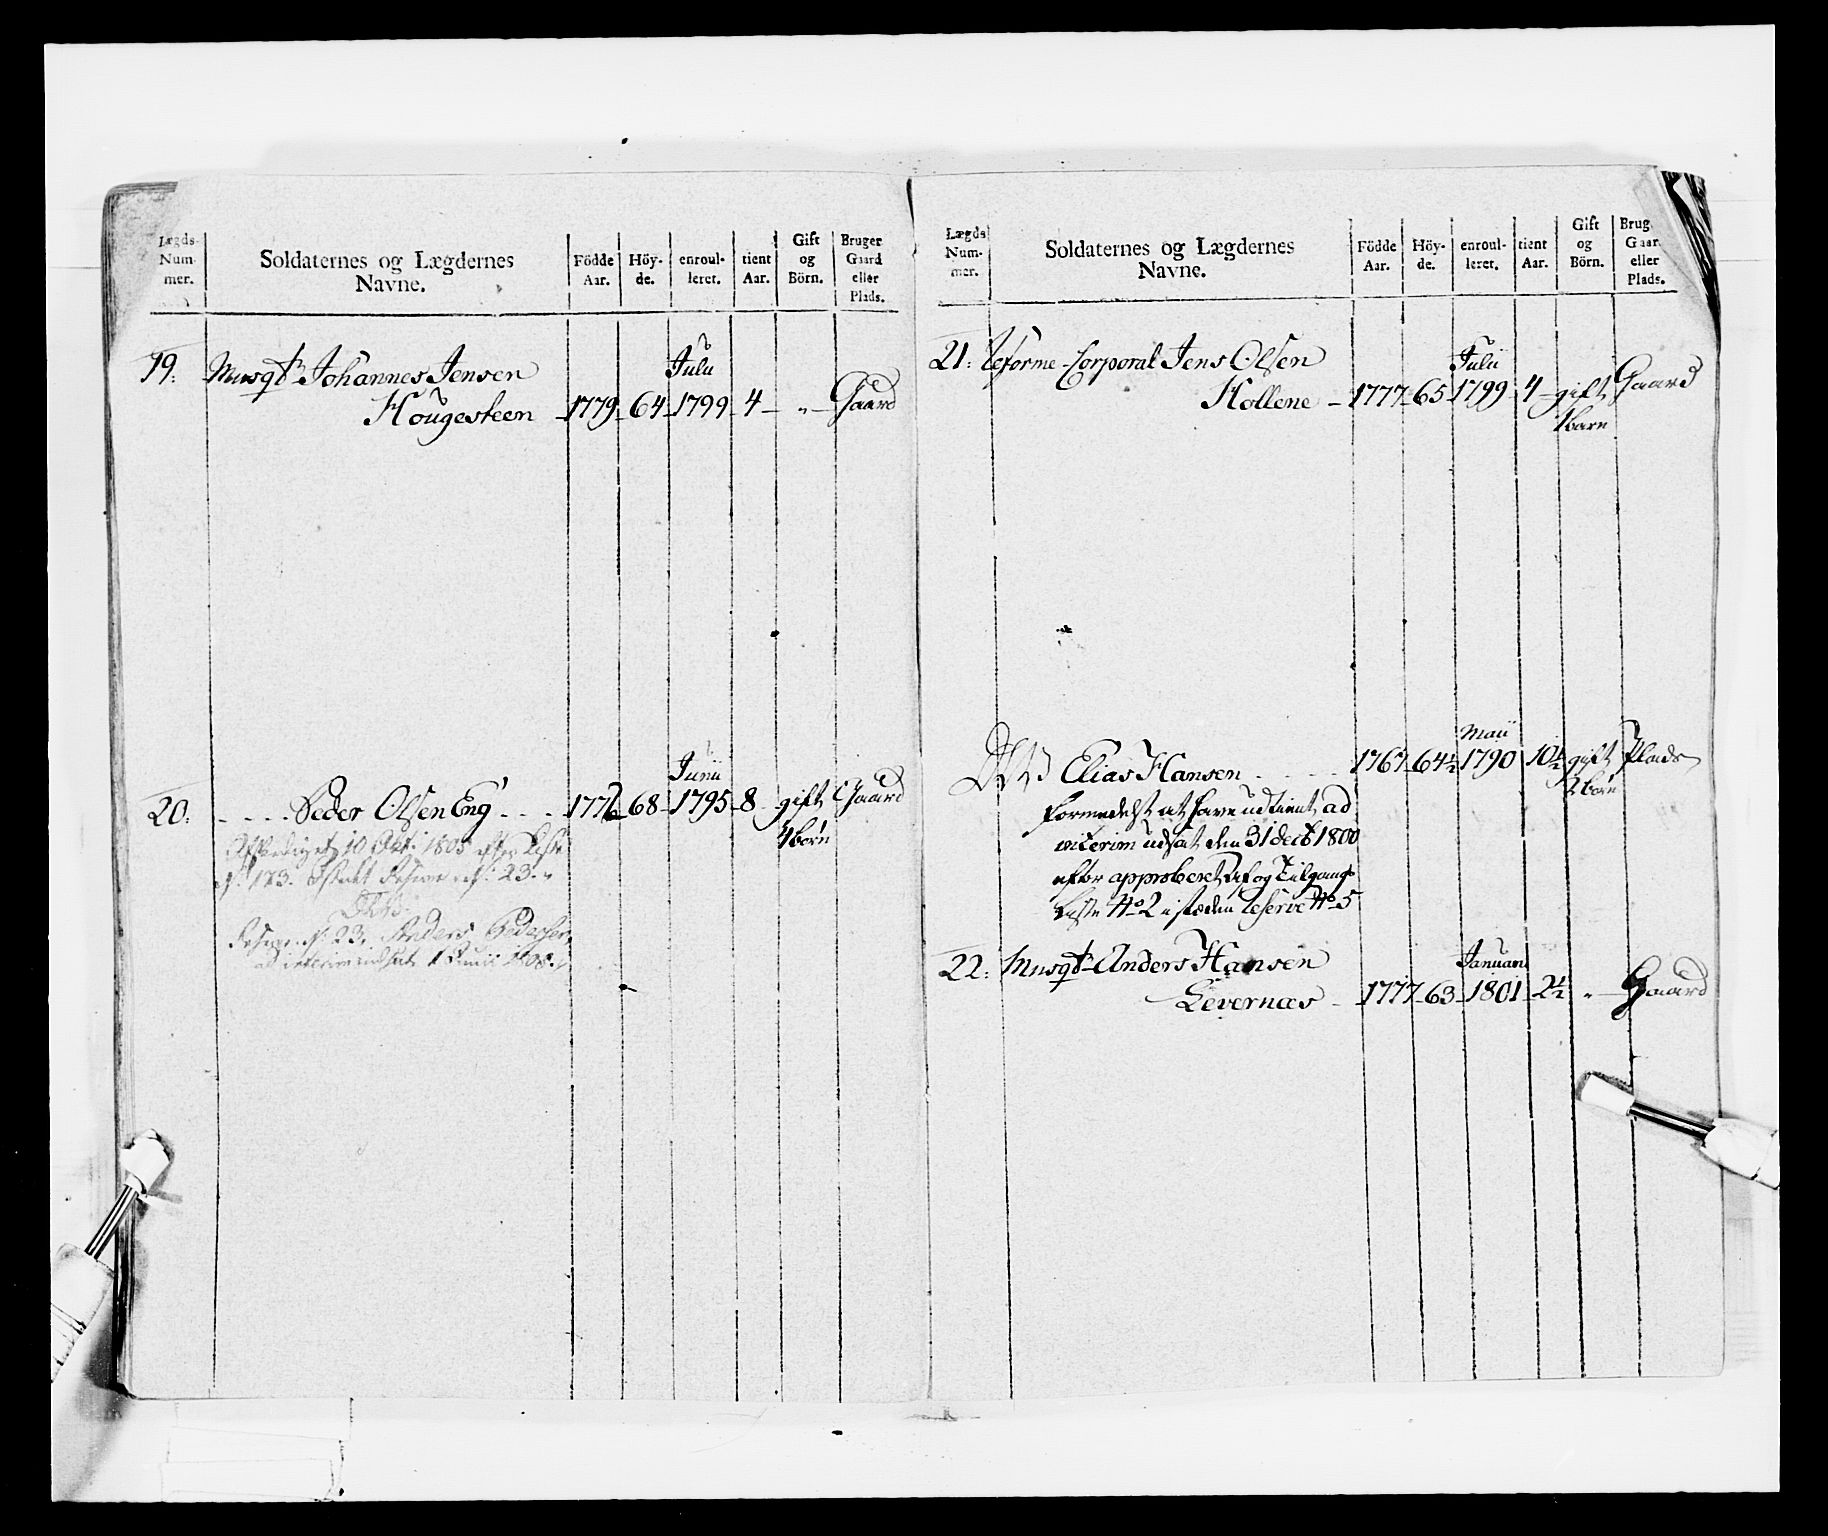 Lægds- Num- mer. Soldaternes og Lægdernes Navne. Födde Aar. Höy- de. enroul- leret. tient Aar. Gift og Börn. Bruger Gaard eller Plads.
Julii
19: Musqt: Johannes Jensen
Hougesteen – 1779 – 64 – 1799 – 4 – „ – Gaard
Junii
20: – . . . . Peder Olsen Eng . . . 1776 – 68 – 1795 – 8 gift Gaard
4 börn
10 1805 efter Liste
N: 173. Reserve N: 23.
Reserve N: 23, Anders Pedersen,
ad interim udsat 1 Junii 1808.
Lægds Num- mer. Soldaternes og Lægdernes Navne. Födde Aar. Höy- de. enroul- leret. tient Aar. Gift og Börn. Brug Gaar eller Plads.
Julii
21: Reforme Corporal Jens Olsen
Hollene – 1777 – 65 – 1799 – 4 – gift Gaard
1 barn
Maii
Elias Hansen . . . . 1767 – 64½ – 1790 10½ gift Plads
2 börn
formedelst at have udtient ad
interim udsat den 31 decb 1800
efter approberet Af og Tilgangs
Liste No 2 i steden Reserve No 5
22: Musqt: Anders Hansen Januarii
Levernæs – 1777 – 63 – 1801 – 2½ „ – Gaard